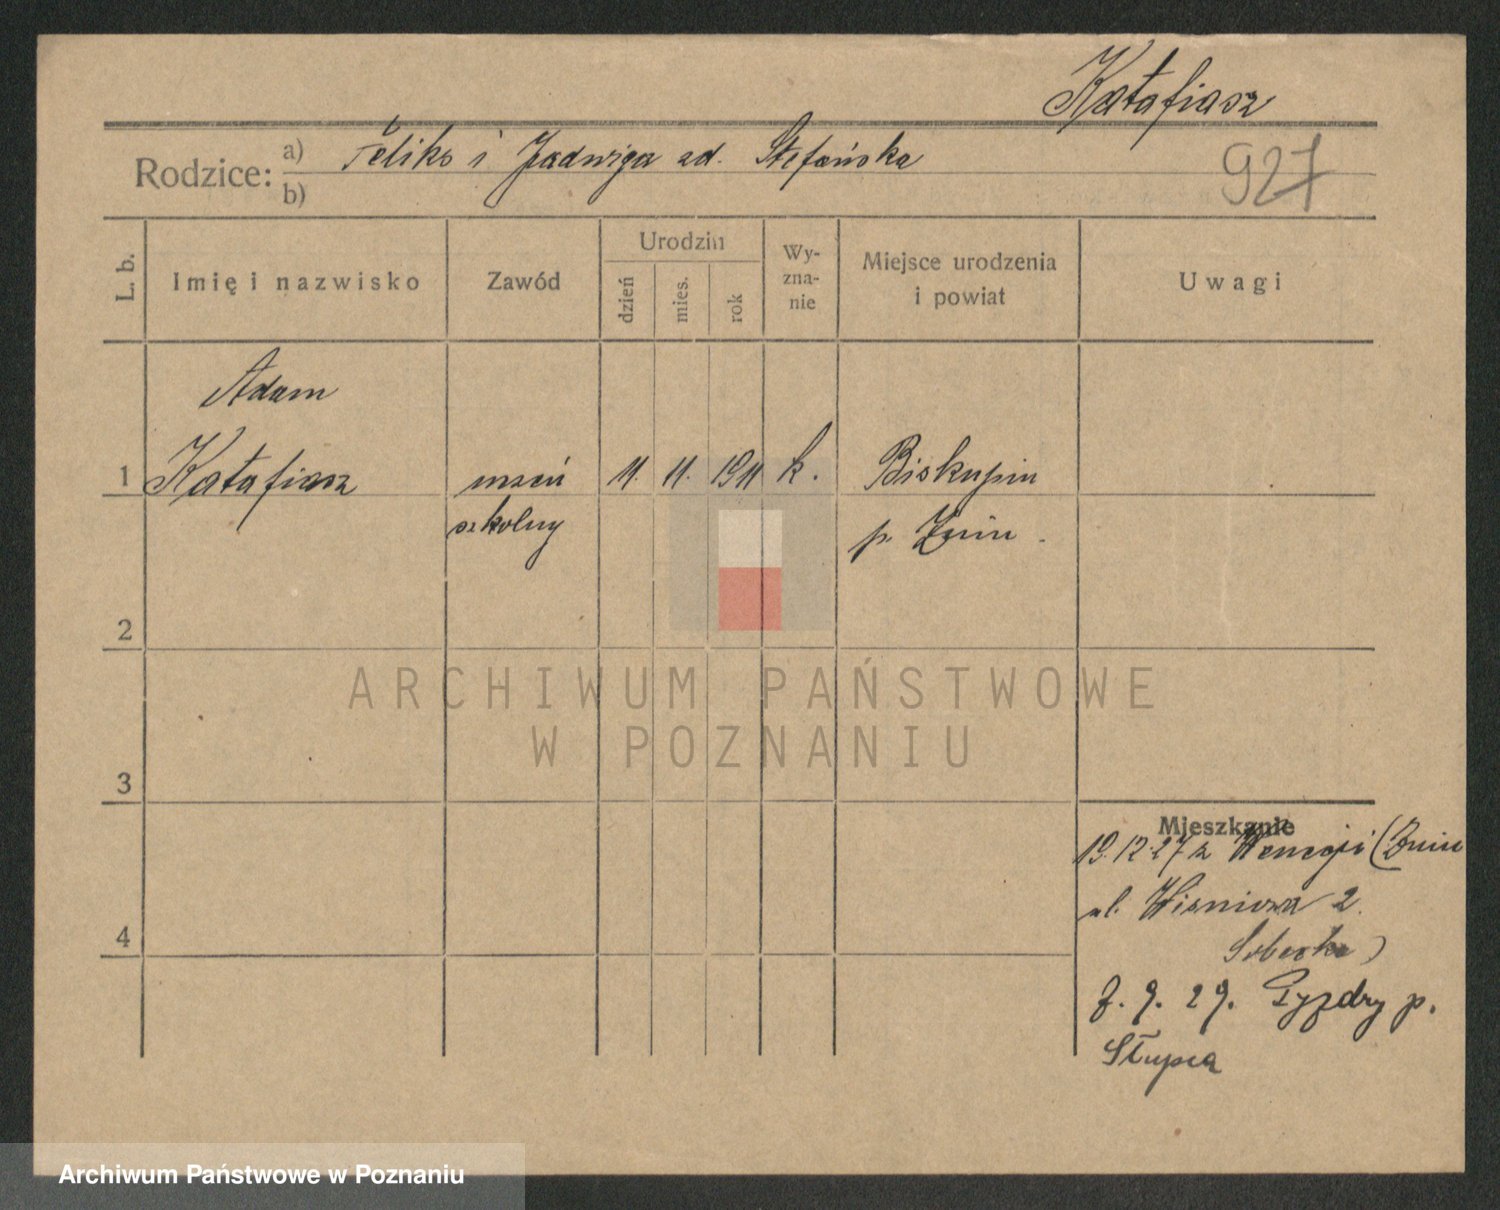 Katafiasz
Rodzice: a) Feliks i Jadwiga ad. Stefańska
b)
927
L. b. Imię i nazwisko Zawód Urodzin Wyznanie Miejsce urodzenia i powiat Uwagi
dzień mies. rok
Adam
1 Katafiasz uczeń 11. 11. 1911 k. Biskupin
szkolny p. Żnin.
2
ARCHIWUM PAŃSTWOWE
W POZNANIU
3
Mieszkanie
19.12.27 z Wenecji (Żnin
ul. Wiśniowa 2.
Sobecka)
7. 9. 29. Pyzdry p.
4
Słupca
Archiwum Państwowe w Poznaniu